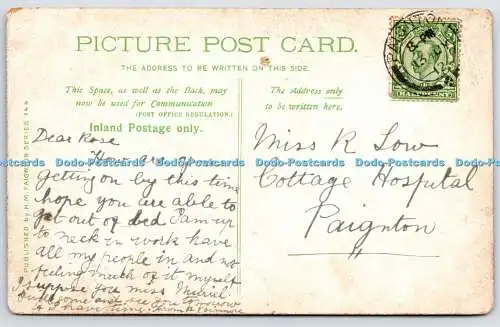 PICTURE POST CARD.
THE ADDRESS TO BE WRITTEN ON THIS SIDE.
This Space, as well as the Back, may
now be used for Communication
(POST OFFICE REGULATION.)
Inland Postage only.
The Address only
to be written here.
PUBLISHED by H.M. PAIGNTON SERIES
Dear Rose
How are you
getting on by this time
hope you are able to
get out of bed I am up
to neck in work have
all my people in and not
feeling much of it myself
I suppose you miss Muriel
come and see you tomorrow
if I have time. from
Miss R Low
Cottage Hospital
Paignton
PAIGNTON
Dodo-Postcards Dodo-Postcards Dodo-Postcards Dodo-Postcards Dodo-Postcards Dodo-Postcards